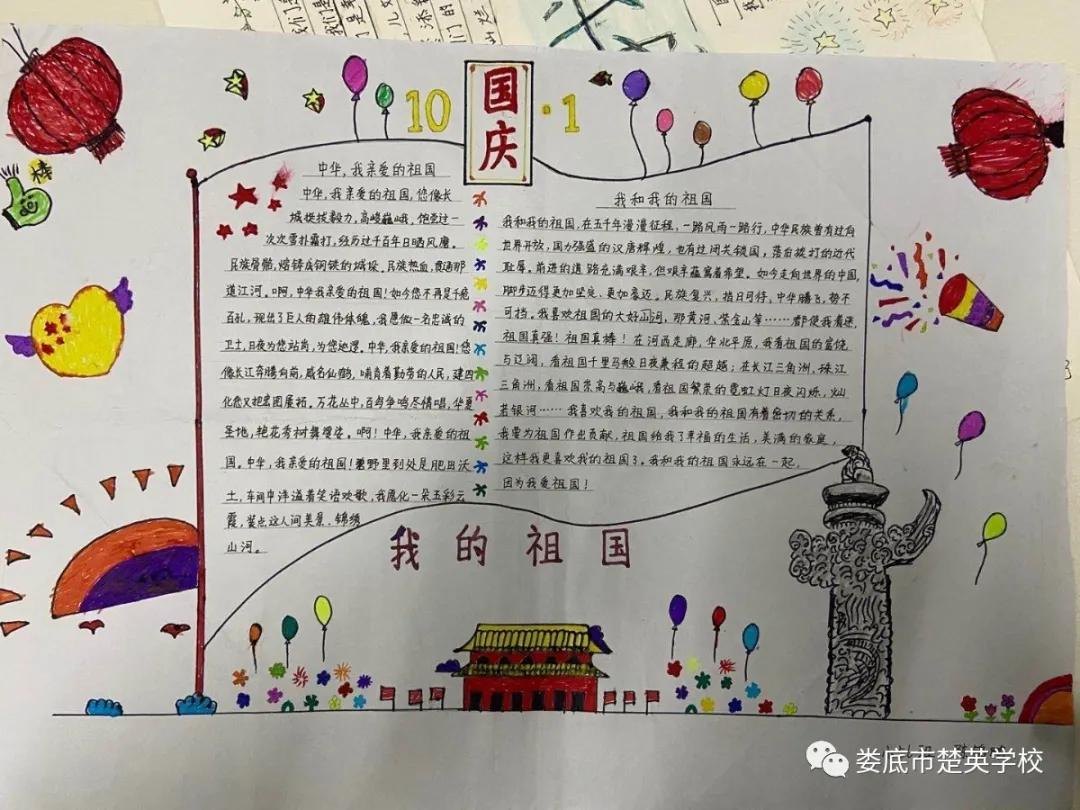 10
国庆
·1
中华，我亲爱的祖国
中华，我亲爱的祖国，您像长
城挺拔毅力，高峻巍峨。饱受过一
次次雪扑霜打，经历过千百年日晒风磨。
民族骨骼，熔铸成钢铁的城垛。民族热血，贯通那
道江河。啊，中华我亲爱的祖国！如今您不再是千疮
百孔，现出了巨人的雄伟体魄，我愿做一名忠诚的
卫士，日夜为您站岗，为您巡逻。中华，我亲爱的祖国！您
像长江奔腾向前，威名仙鹤，哺育着勤劳的人民，建四
化您又把宏图展拓。万花丛中，百鸟争鸣尽情唱，华夏
圣地，艳花秀树舞婆娑。啊！中华，我亲爱的祖
国。中华，我亲爱的祖国！野里到处是肥田沃
土，车间中洋溢着笑语欢歌，我愿化一朵五彩云
霞，装点这人间美景、锦绣
山河。
我和我的祖国
我和我的祖国，在五千年漫漫征程，一路风雨一路行，中华民族曾有过向
世界开放，国力强盛的汉唐辉煌，也有过闭关锁国，落后挨打的近代
耻辱。前进的道路充满艰辛，但艰辛蕴富着希望。如今走向世界的中国，
脚步迈得更加坚定、更加豪迈。民族复兴，指日可待。中华腾飞，势不
可挡。我喜欢祖国的大好山河，那黄河、紫金山等……都使我着迷，
祖国真强！祖国真棒！在河西走廊，华北平原，我看祖国的富饶
与辽阔，看祖国千里马般日夜兼程的超越；在长江三角洲，珠江
三角洲，看祖国崇高与巍峨，看祖国繁荣的霓虹灯日夜闪烁，灿
若银河……我喜欢我的祖国，我和我的祖国有着密切的关系，
我要为祖国作出贡献，祖国给我了幸福的生活，美满的家庭，
这样我更喜欢我的祖国了。我和我的祖国永远在一起，
因为我爱祖国！
我的祖国
娄底市楚英学校